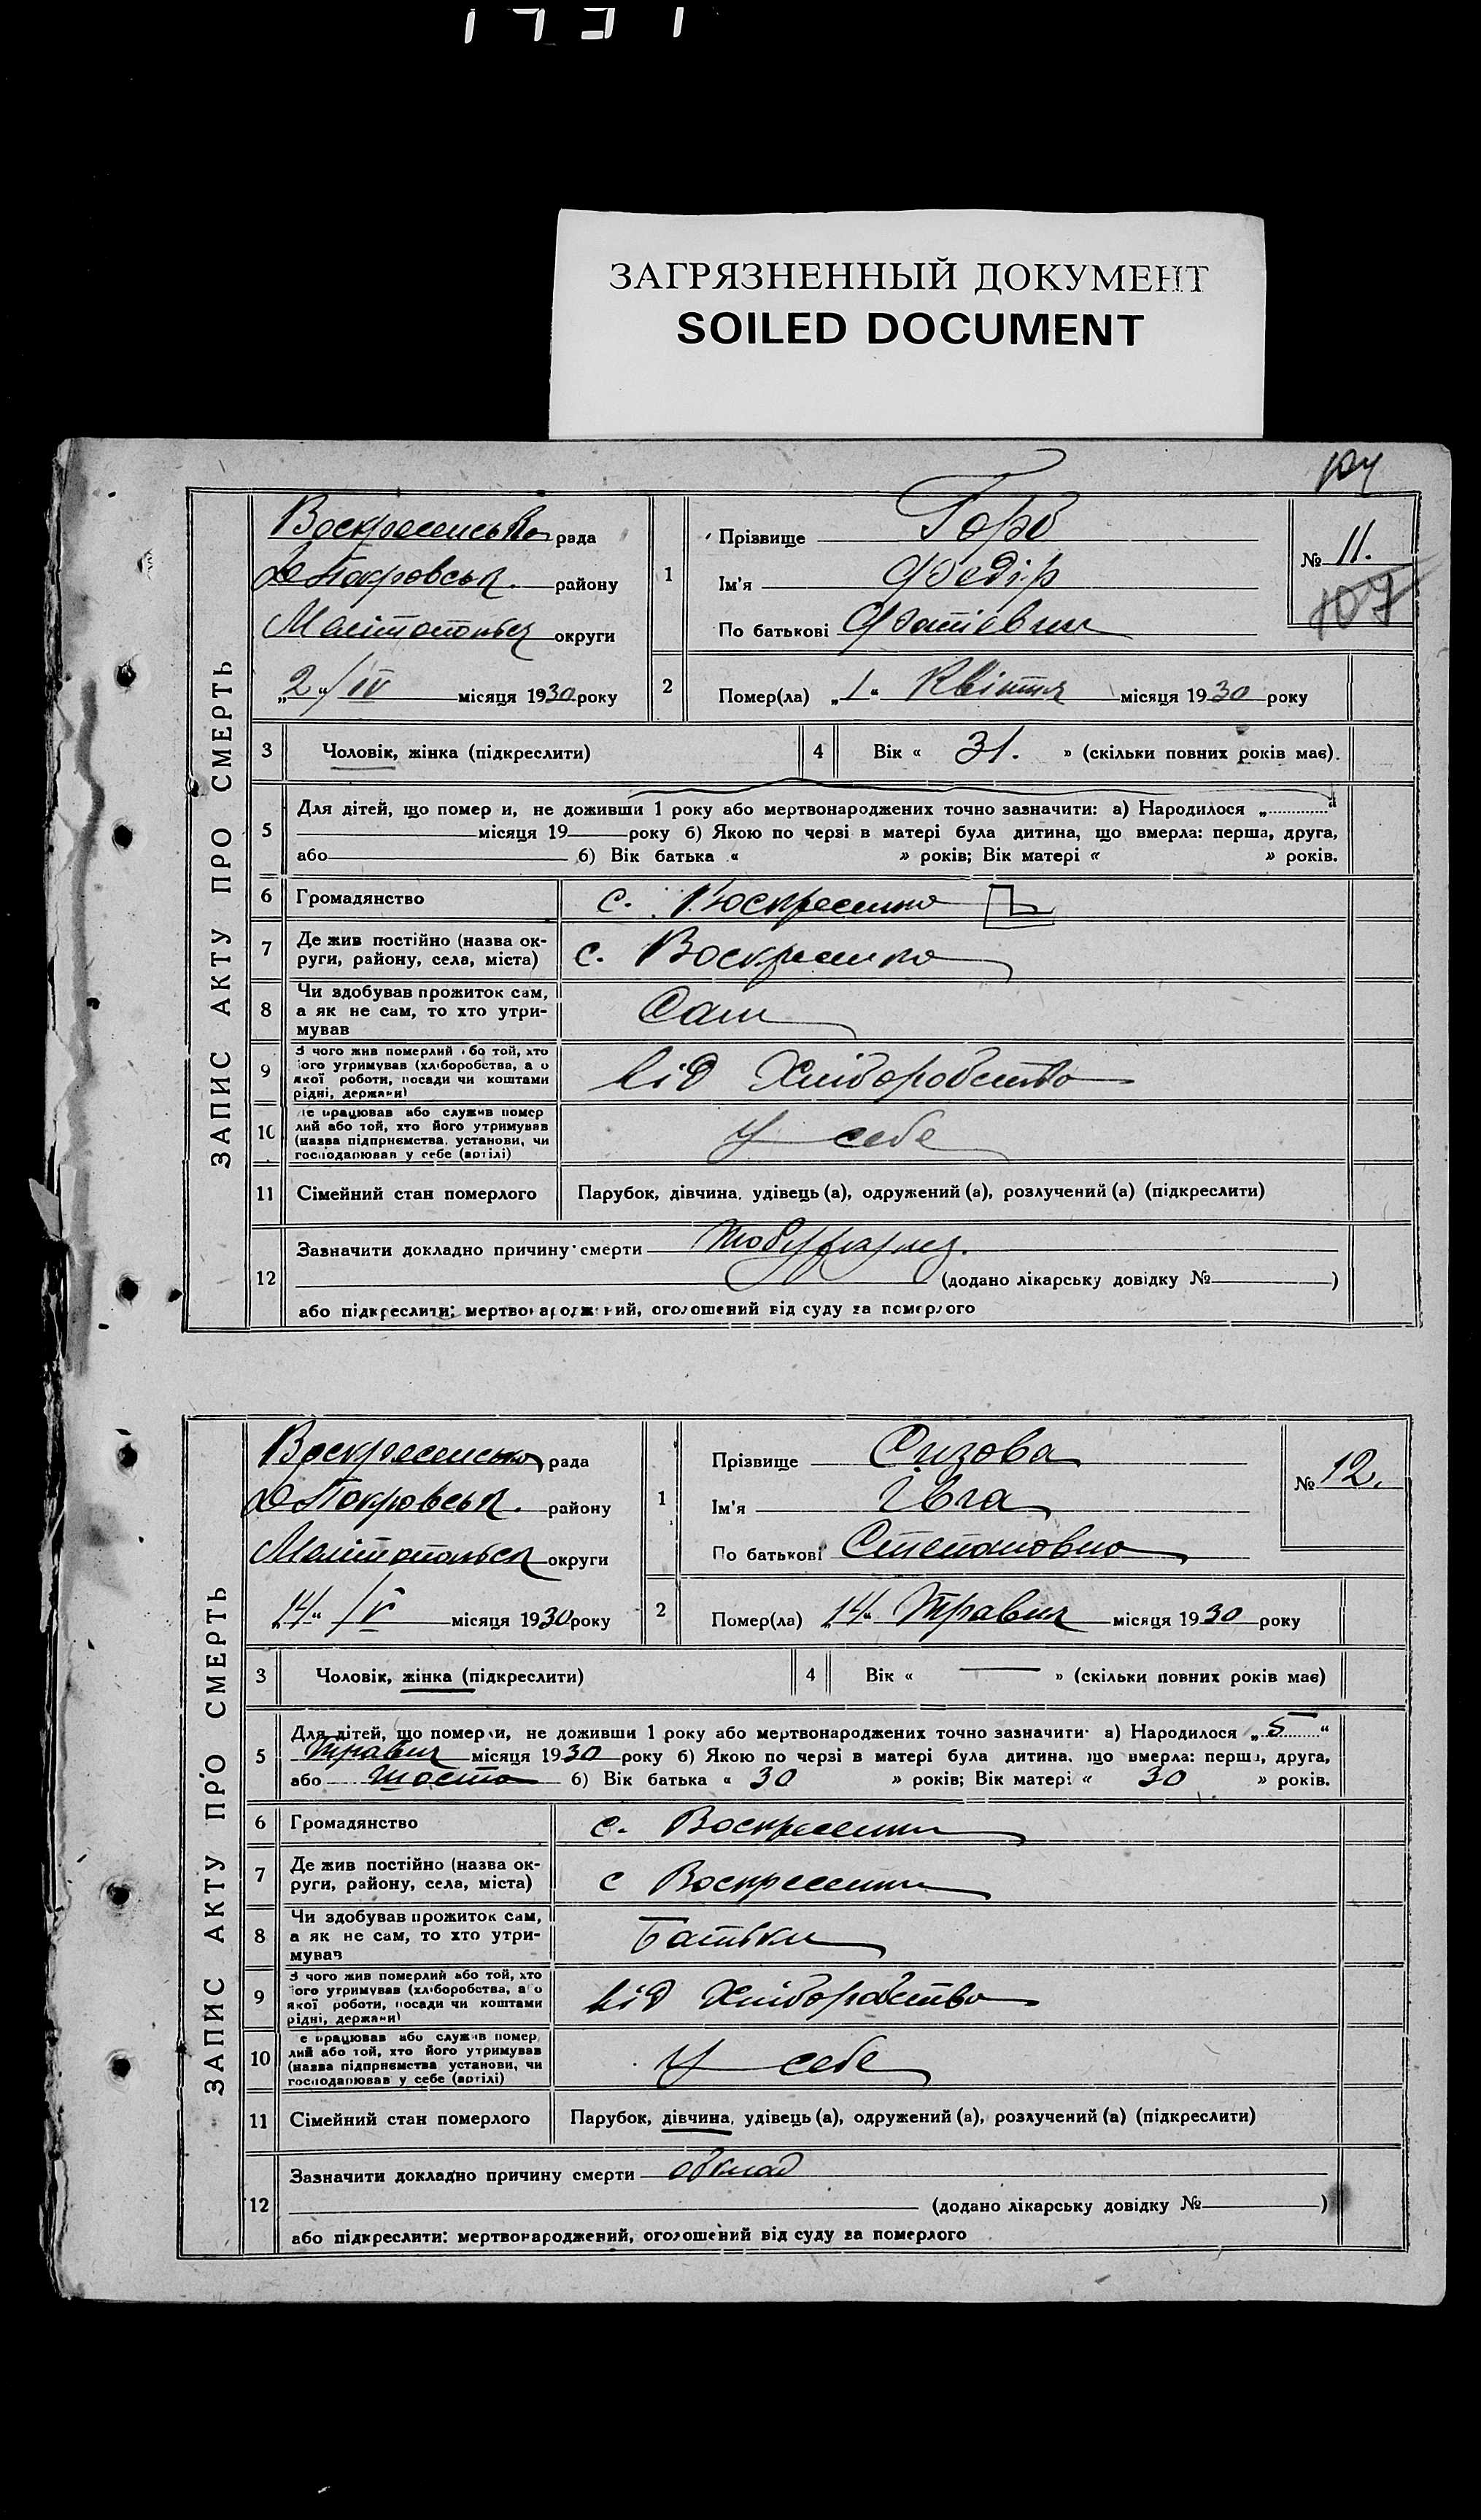 1931
ЗАГРЯЗНЕННЫЙ ДОКУМЕНТ
SOILED DOCUMENT
104
ЗАПИС АКТУ ПРО СМЕРТЬ
Воскресенська рада
Покровськ. району
Мелітопольск округи
„2“/IV місяця 1930 року
1
Прізвище Горб
Ім'я Федір
По батькові
№ 11.
107
2
Помер(ла) „1“ Квітня місяця 1930 року
3 Чоловік, жінка (підкреслити)
4 Вік « 31. » (скільки повних років має).
5 Для дітей, що помер и, не доживши 1 року або мертвонароджених точно зазначити: а) Народилося „ “
місяця 19 року б) Якою по черзі в матері була дитина, що вмерла: перша, друга,
або б) Вік батька « » років; Вік матері « » років.
6 Громадянство с. Воскресенка
7 Де жив постійно (назва ок-
руги, району, села, міста) с. Воскресенка
8 Чи здобував прожиток сам,
а як не сам, то хто утри-
мував Сам
9 З чого жив померлий або той, хто
його утримував (хліборобства, а о
якої роботи, посади чи коштами
рідні, держави) від Хліборобства
10 е працював або служив помер
лий або той, хто його утримував
(назва підприємства, установи, чи
господарював у себе (артілі) У себе
11 Сімейний стан померлого Парубок, дівчина, удівець (а), одружений (а), розлучений (а) (підкреслити)
12 Зазначити докладно причину смерти
(додано лікарську довідку № )
або підкреслити: мертвонароджений, оголошений від суду за померлого
ЗАПИС АКТУ ПРО СМЕРТЬ
Воскресенська рада
Покровськ. району
Мелітопольск округи
„14“ /V місяця 1930 року
1
Прізвище Сизова
Ім'я Івга
По батькові Степановна
№ 12.
2
Помер(ла) „14“ Травня місяця 1930 року
3 Чоловік, жінка (підкреслити)
4 Вік « — » (скільки повних років має)
5 Для дітей, що померли, не доживши 1 року або мертвонароджених точно зазначити: а) Народилося „5“
Травня місяця 1930 року б) Якою по черзі в матері була дитина, що вмерла: перша, друга,
або шоста б) Вік батька « 30 » років; Вік матері « 30 » років.
6 Громадянство с. Воскресенки
7 Де жив постійно (назва ок-
руги, району, села, міста) с Воскресенки
8 Чи здобував прожиток сам,
а як не сам, то хто утри-
мував Батьки
9 З чого жив померлий або той, хто
його утримував (хліборобства, а о
якої роботи, посади чи коштами
рідні, держави) від Хліборобства
10 е працював або служив помер
лий або той, хто його утримував
(назва підприємства установи, чи
господарював у себе (артілі) У себе
11 Сімейний стан померлого Парубок, дівчина, удівець (а), одружений (а), розлучений (а) (підкреслити)
12 Зазначити докладно причину смерти обклад
(додано лікарську довідку № )
або підкреслити: мертвонароджений, оголошений від суду за померлого